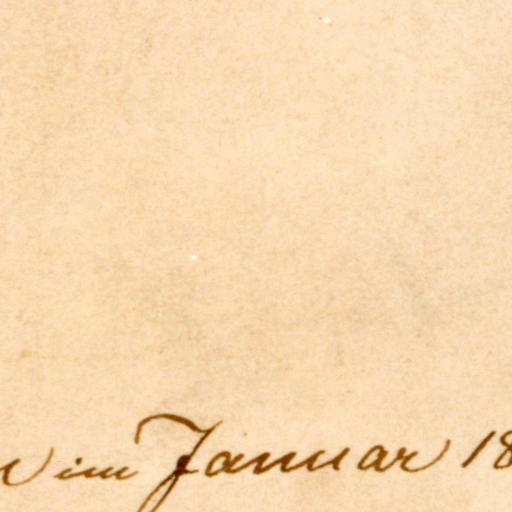 im Januar 18